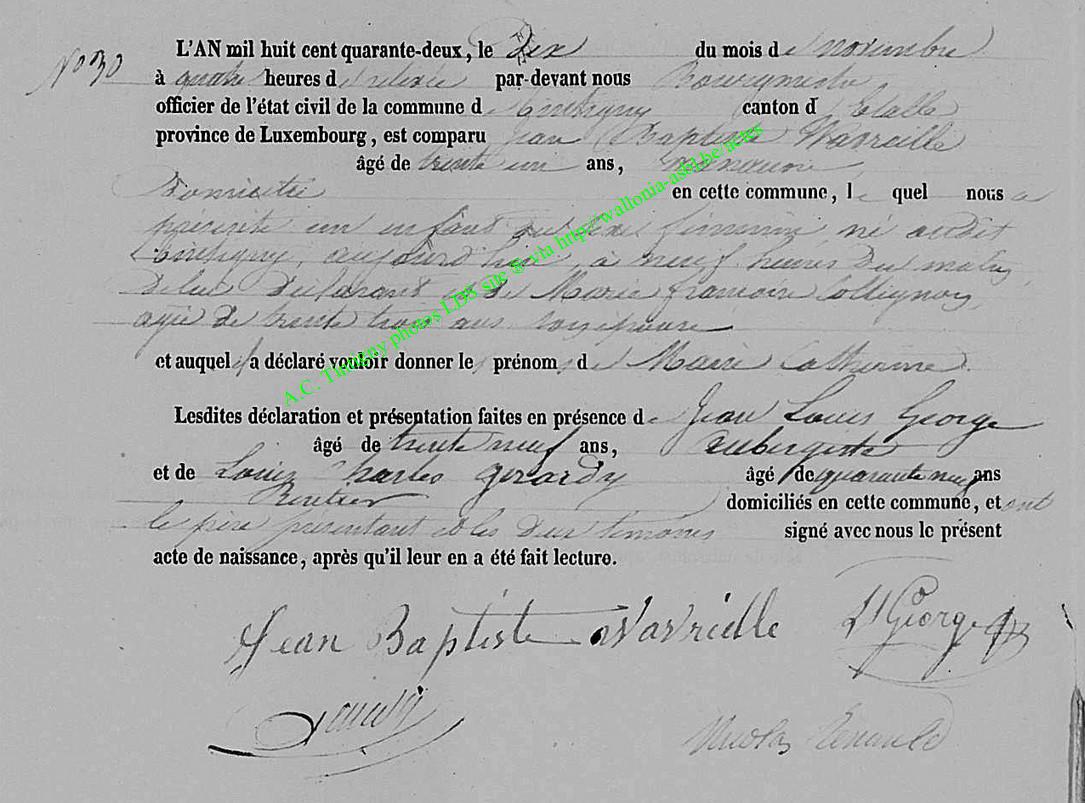 No 30
L'AN mil huit cent quarante-deux, le dix du mois de novembre
à quatre heures de relevée par-devant nous
officier de l'état civil de la commune de Tintigny canton d'Etalle
province de Luxembourg, est comparu Jean Baptiste Wavreille
âgé de trente un ans,
domicilié en cette commune, lequel nous a
présenté un enfant du sexe féminin né audit
Tintigny aujourd'hui à neuf heures du matin,
de lui déclarant et de Marie françoise Collignon,
agée de trente trois ans son épouse
et auquel il a déclaré vouloir donner les prénoms de Marie catherine.
Lesdites déclaration et présentation faites en présence de Jean Louis George
âgé de trente neuf ans, aubergiste
et de Louis Charles gerardy âgé de quarante neuf ans
Rentier domiciliés en cette commune, et ont
le père présentant et les deux témoins signé avec nous le présent
acte de naissance, après qu'il leur en a été fait lecture.
Jean Baptiste Wavrielle George
A.C. Tintigny photos LDS site @ via http://wallonia-asbl.be/actes